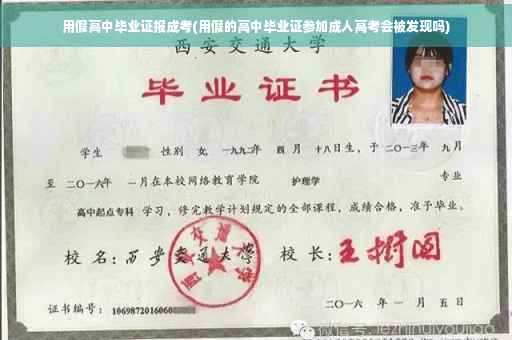 用假高中毕业证报成考(用假的高中毕业证参加成人高考会被发现吗)
西安交通大学
毕业证书
学生 性别 女, 一九九二年 四月 十八日生, 于 二〇一三年 九月
至 二〇一六年 一月在本校网络教育学院 护理学 专业
高中起点专科 学习, 修完教学计划规定的全部课程, 成绩合格, 准予毕业。
校名: 西安交通大学 校长: 王树国
西安交通大学
证书编号: 1069872016060
二〇一六年 一月 五日
微信号: jezhihuiyoujiao